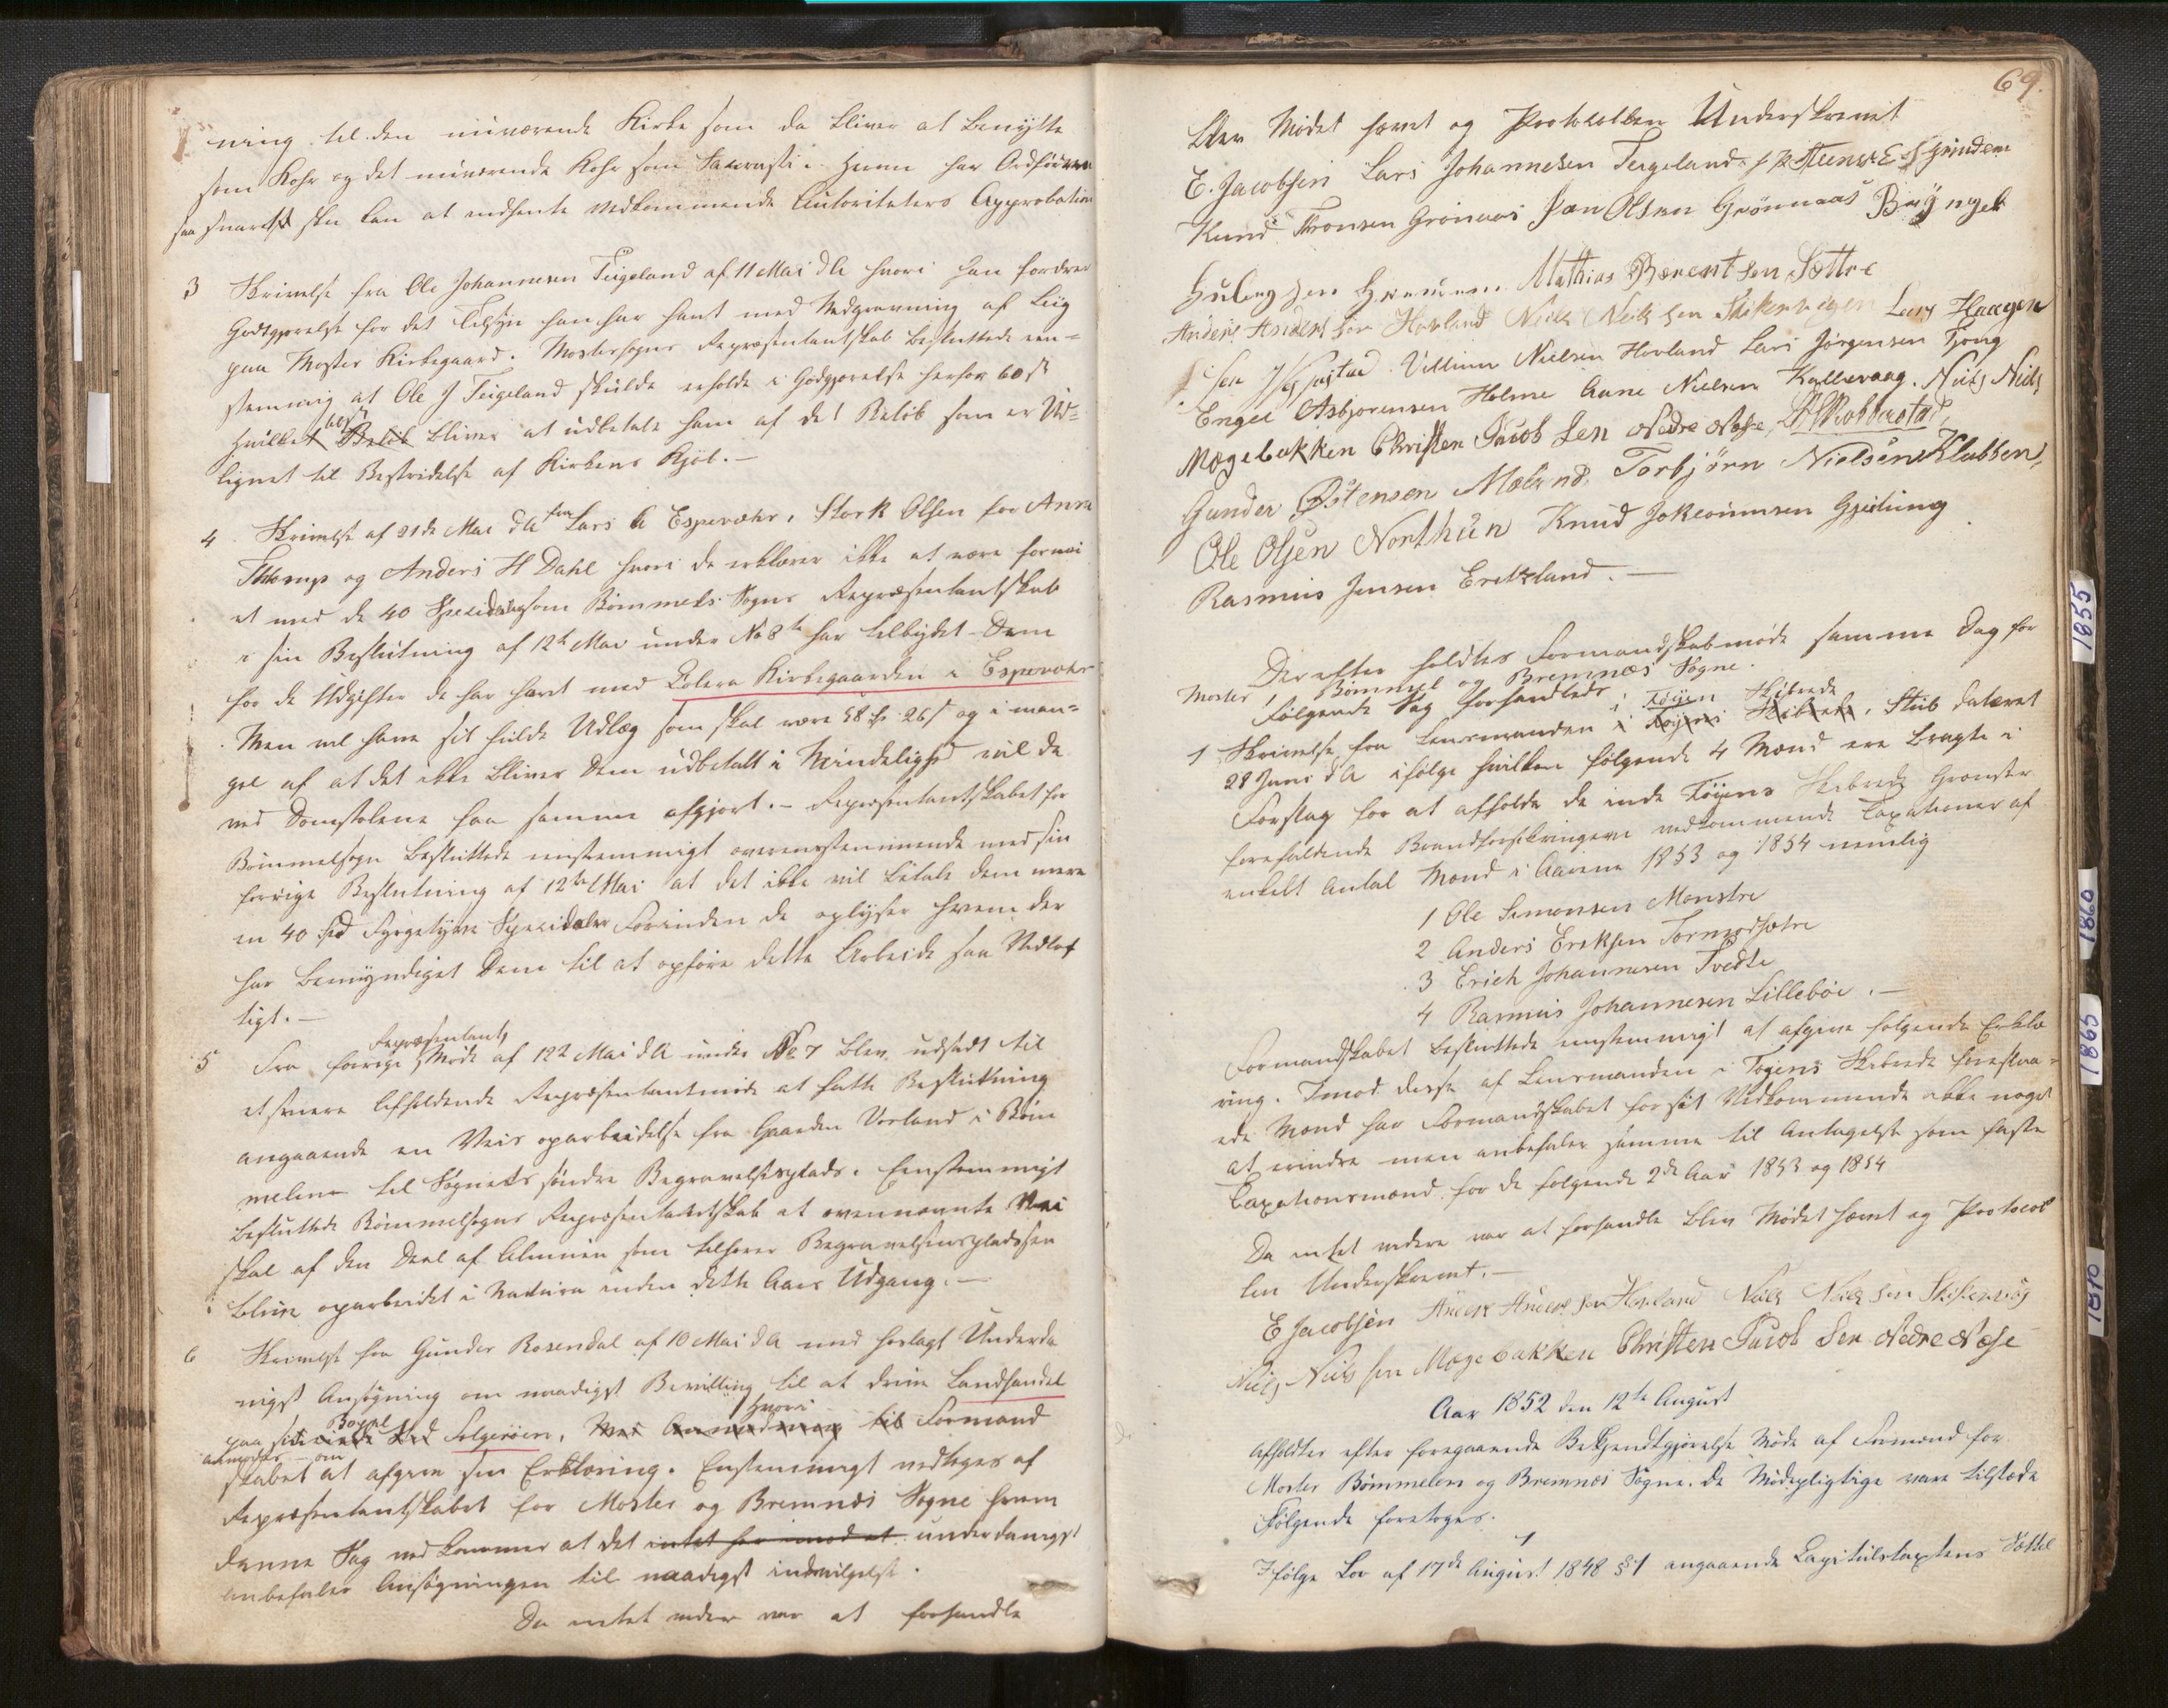 ning til den nuværende Kirke som da bliver at benytte
som Kohr og det nuværende Kohr som Sacrasti. Herom har Ordføreren
saa snart skee kan at indhente vedkommende Autoriteters Approbation
3 Skrivelse fra Ole Johannesen Teigeland af 11 Mai d A hvori han fordrer
Godtgjørelse for det Tilsyn han har havt med Nedgravning af Liig
paa Moster Kirkegaard. Mostersogns Repræsentantskab besluttede een-
stemmig at Ole J Teigeland skulde erholde i Godgjørelse herfor 60 s
Hvilket Beløb bliver at udbetale ham af det Beløb som er Ud-
lignet til Bestridelse af Kirkens Kjøb.-
4 Skrivelse af 21de Mai d A fra Lars A Espevæhr, Stork Olsen for Anna
Thorup og Anders H Dahl hvori de erklærer ikke at være fornøi
et med de 40 Speciedaler som Bømmels Sogns Repræsentantskab
i sin Beslutning af 12te Mai under No 8 har tilbydet Dem
for de Udgifter de har havt med Colera Kirkegaarden i Espevæhr
Men vil have sit fulde Udlæg som skal være 58 26 s og i man-
gel af at det ikke bliver Dem udbetalt i Mindelighed vil de
ved Domstolene faa samme afgjort.- Repræsentantskabet for
Bømmelsogn besluttede eenstemmigt overeensstemmende med sin
forrige Beslutning af 12te Mai at det ikke vil betale dem mere
en 40 Spd Fyrgetyve Speciedaler Forinden de oplyser hvem der
har bemyndiget Dem til at opføre dette Arbeide saa Vidløf
tigt.-
Repræsentant
5 Fra forrige Møde af 12te Mai d A under No 7 blev udsadt til
et senere Afholdende Repræsentantmøde at fatte Beslutning
angaaende en Veis oparbeidelse fra Gaarden Vorland i Bøm
melen til Sognets søndre Begravelsesplads. Eenstemmigt
besluttede Bømmelsogns Repræsentantskab at ovennævnte Vei
skal af den Deel af Almuen som tilhører Begravelsespladsen
blive oparbeidet i Natura inden dette Aars Udgang.-
6 Skrivelse fra Gunder Rosendal af 10 Mai d A med forlagt Underda
nigst Ansøgning om naadigst Bevilling til at drive Landhandel
Boepæl Hvori
paa sit Folgerøen, Formand
anmodes om
skabet at afgive sin Erklæring. Eenstemmigt vedtoges af
Repræsentantskabet for Moster og Bremnæs Sogne hvem
denne Sag ved kommer at det intet har imod at underdanigst
anbefaler Ansøgningen til naadigst indvilgelse.
Da intet videre var at forhandle
69.
blev Mødet hævet og Protokollen Underskrevet
E. Jacobsen Lars Johannesen Teigeland
Knud Tronsen Grønaas Jan Olsen Grønnaas Bryngel
Mathias Bærentsen Sættre
Anders Andersen Hovland Niels Nielsen Skikenvigen Lars Haagen
Villum Nielsen Hovland Lars Jørgensen Fjong
Engel Asbjørensen Holme Aane Nielsen Kallevaag. Niels Niels
Møgebakken Christen Jacob sen Nedre Næsse,
Gunder Østensen Mæland, Torbjørn Nielsen Klubben,
Ole Olsen Northun Knud Gjeitung
Rasmus Jensen Ereksland.-
Derefter holdtes Formandskabmøde samme Dag for
Moster, Bømmel og Bremnæs Sogne.
følgende Sag forhandlede
i Føÿen Skibrede
1 Skrivelse fra Lensmanden i Føyens Skibrede, Stub dateret
28 Juni d A ifølge hvilken følgende 4 Mænd ere bragte i
Forslag for at afholde de inde Føÿens Skibreds Grændser
forefaldende Brandforsikringerne vedkommende Taxationer af
enkelt Antal Mænd i Aarene 1853 og 1854 nemlig
1 Ole Simonsen Monstre
2 Anders Eriksen Tormodsætre
3 Erich Johannesen Tvedte
4 Rasmus Johannesen Lillebøe.-
Formandskabet besluttede eenstemmigt at afgive følgende Erklæ
ring. Imod disse af Lensmanden i Føyens Skibrede foreslaa-
ede Mænd har Formandskabet for sit Vidkommende ikke noget
at erindre men anbefaler samme til Antagelse som faste
Taxationsmænd for de følgende 2de Aar 1853 og 1854
Da intet videre var at forhandle blev Mødet hævet og Protocol
len Underskrevet.-
E Jacobsen Anders Andersen Hovland Niels Nielsen Skikenvig
Niels Nielssen Møgebakken Christen Jacob Sen Nedre Næsse
Aar 1852 den 12te August
Afholdtes efter foregaaende Bekjendtgjørelse Møde af Formænd for
Moster Bømmelen og Bremnæs Sogne. De Mødepligtige vare tilstæde
Følgende foretoges.
1
Ifølge Lov af 17de August 1848 § 1 angaaende Capitulstaxtens Sættel
1855
1860
1865
1810